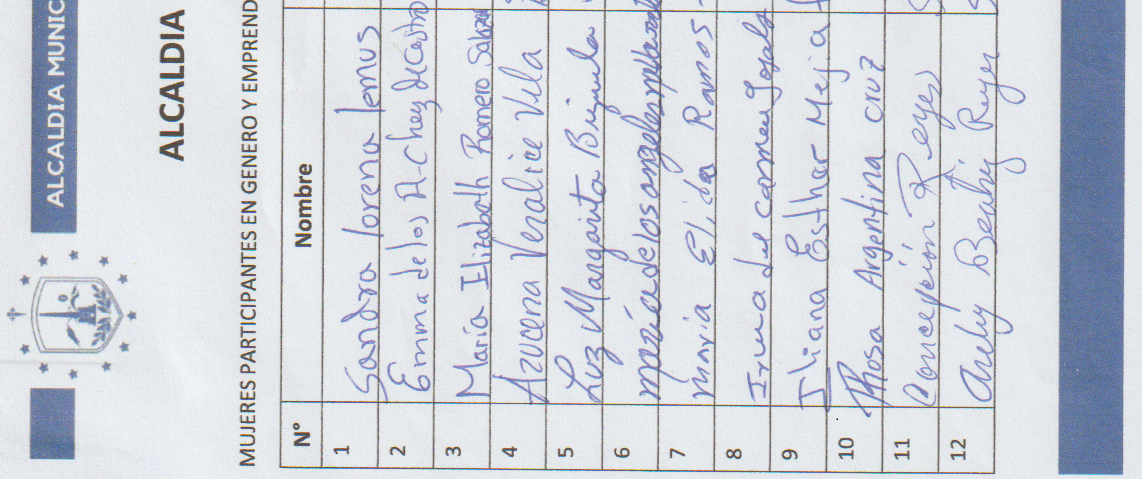 ALCALDIA MUNIC
ALCALDIA
MUJERES PARTICIPANTES EN GENERO Y EMPREND
N° Nombre
1 Sandra lorena lemus
2 Emma delos A-Chey de Castro
3 Maria Elizabeth Romero Salazar
4 Azucena Veralice Vela
5 Luz Margarita
6 maria de los angeles
7 maria Elida Ramos
8 Irma del carmen
9 Iliana Esther Mejia
10 Rosa Argentina cruz
11 Concepción Reyes
12 Beatriz Reyes